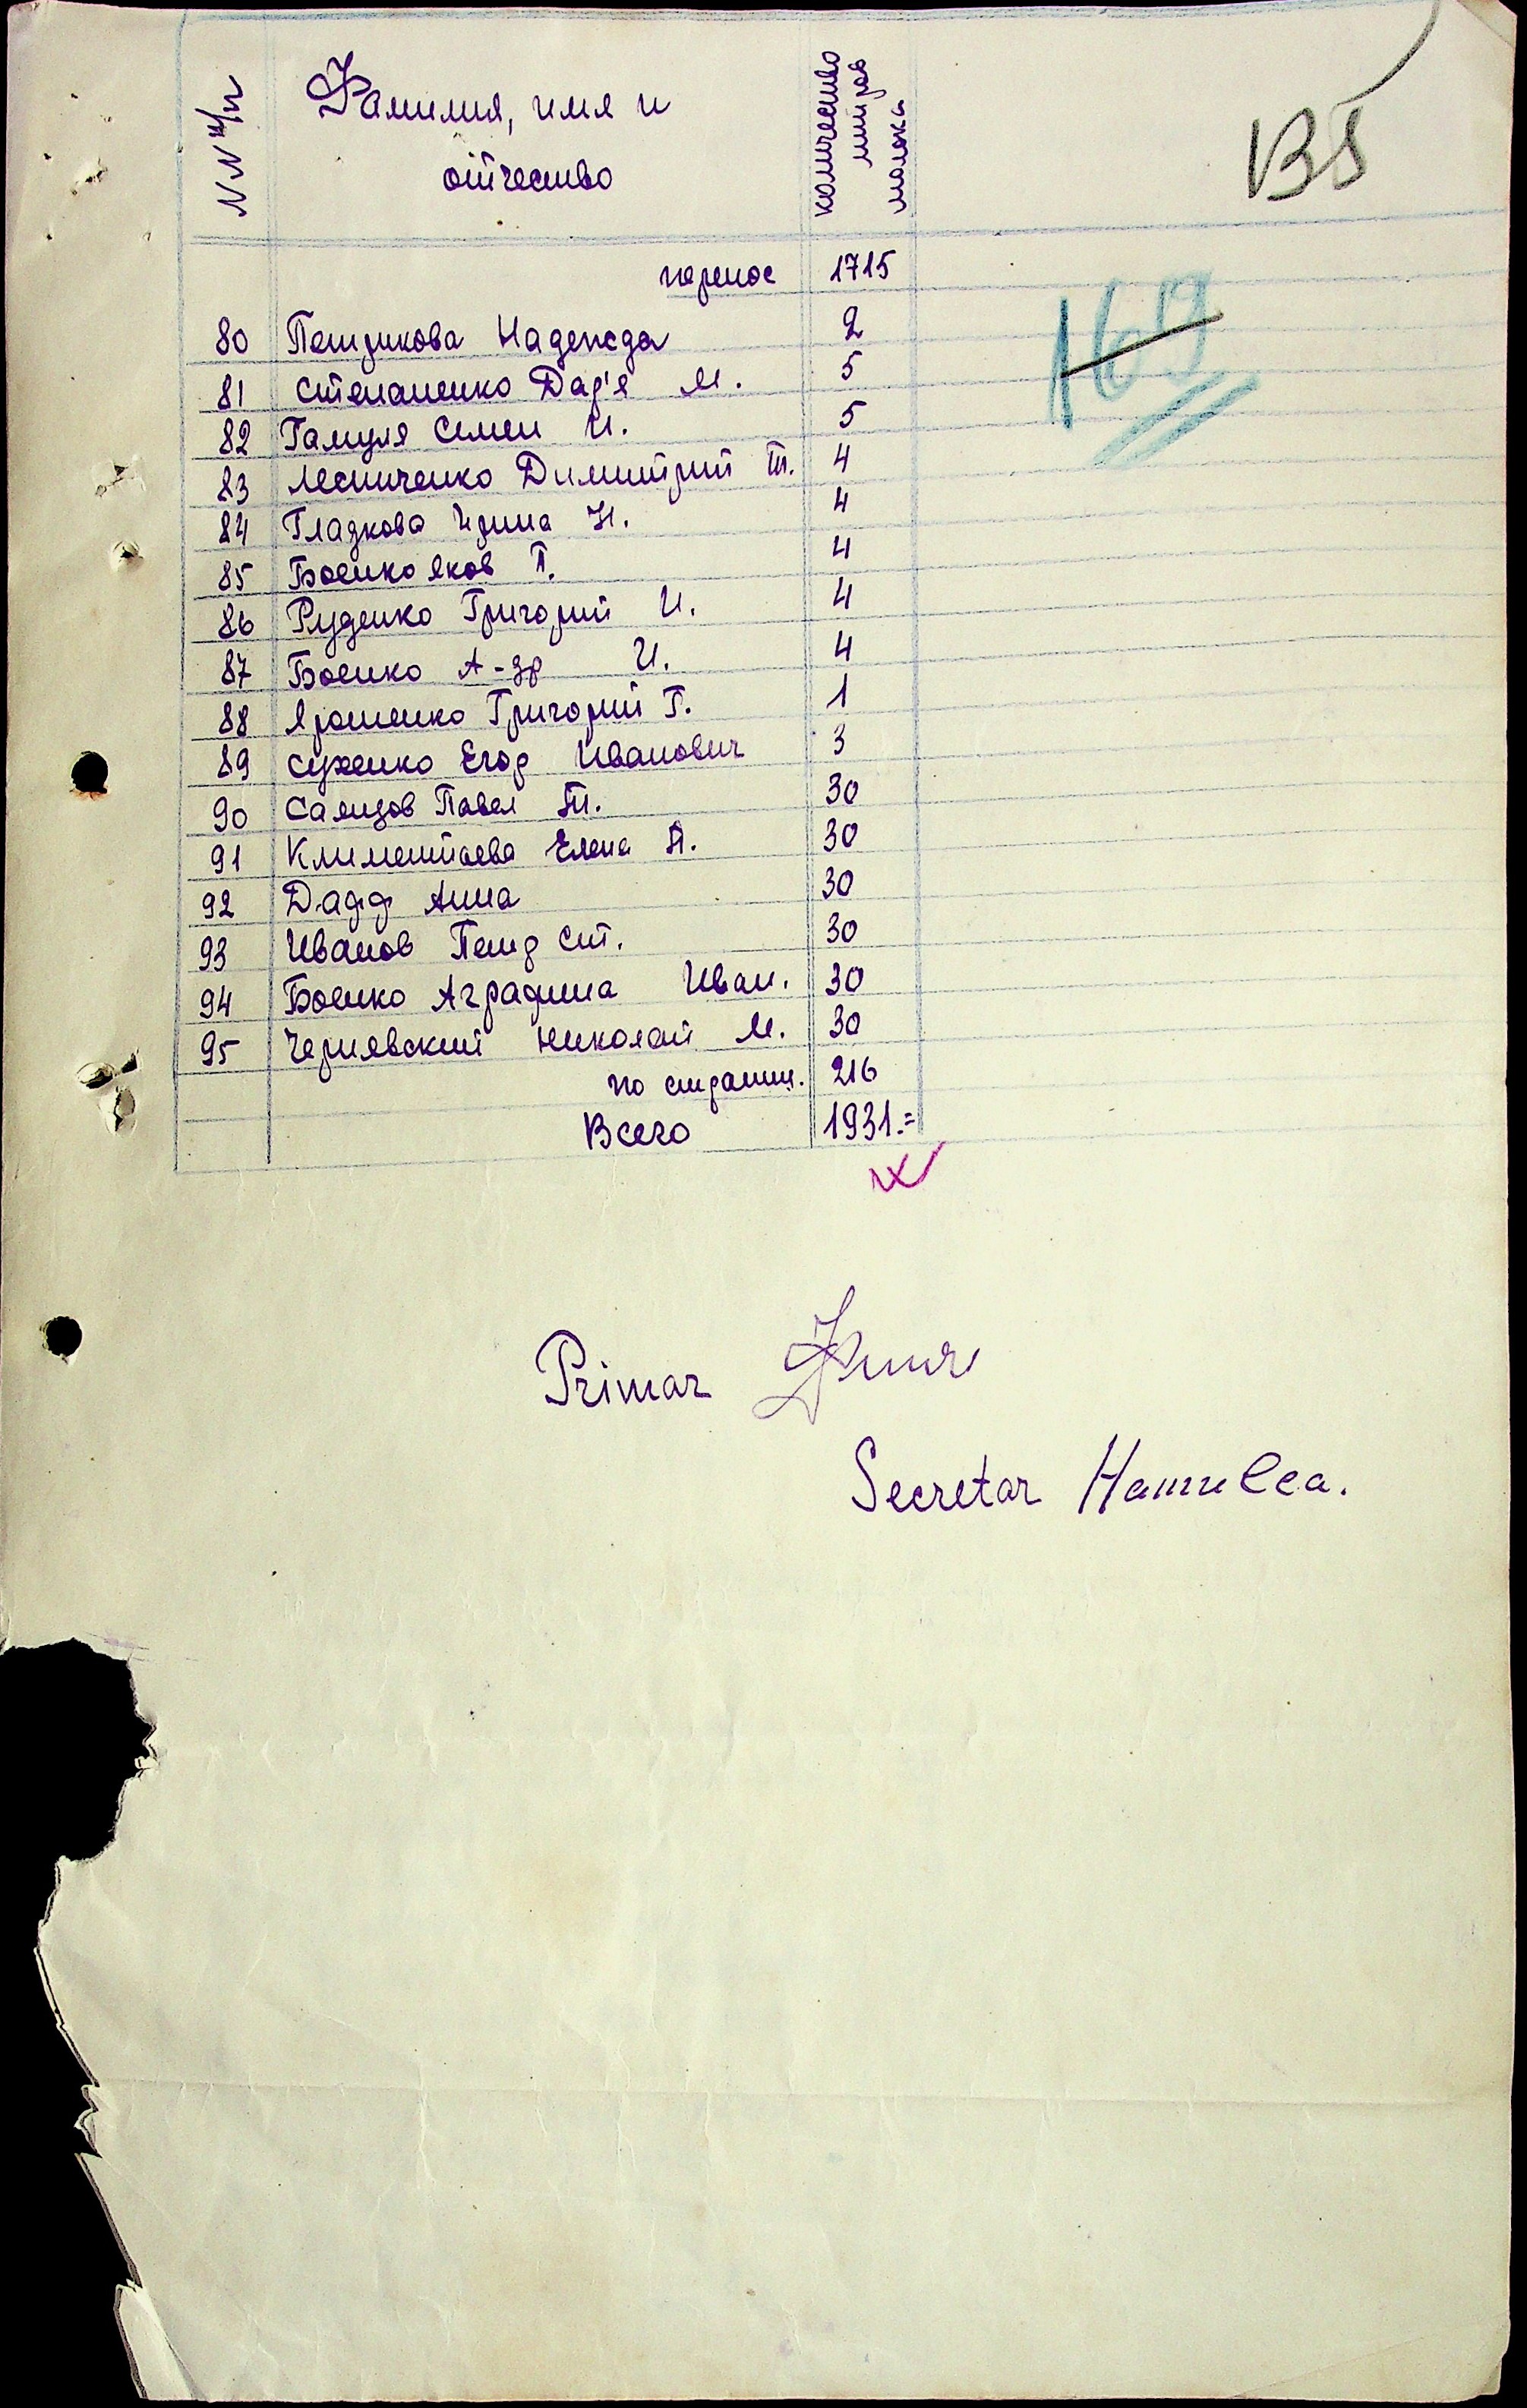 NN п/п
Фамилия, имя и
отчество
количество
литров
молока
перенос 1715
80 Петрикова Надежда 2
81 Степаненко Дар'я М. 5
82 Гамуля Семен И. 5
83 Лесниченко Димитрий Т. 4
84 Гладкова Ирина Н. 4
85 Боенко Яков П. 4
86 Руденко Григорий И. 4
87 Боенко А-др И. 4
88 Ярошенко Григорий Г. 1
89 Суженко Егор Иванович 3
90 Саенцов Павел Т. 30
91 Климентьева Елена П. 30
92 Дафф Анна 30
93 Иванов Петр Ст. 30
94 Боенко Аграфина Иван. 30
95 Чернявский Николай М. 30
по страниц. 216
Всего 1931.=
169
Primar
Secretar